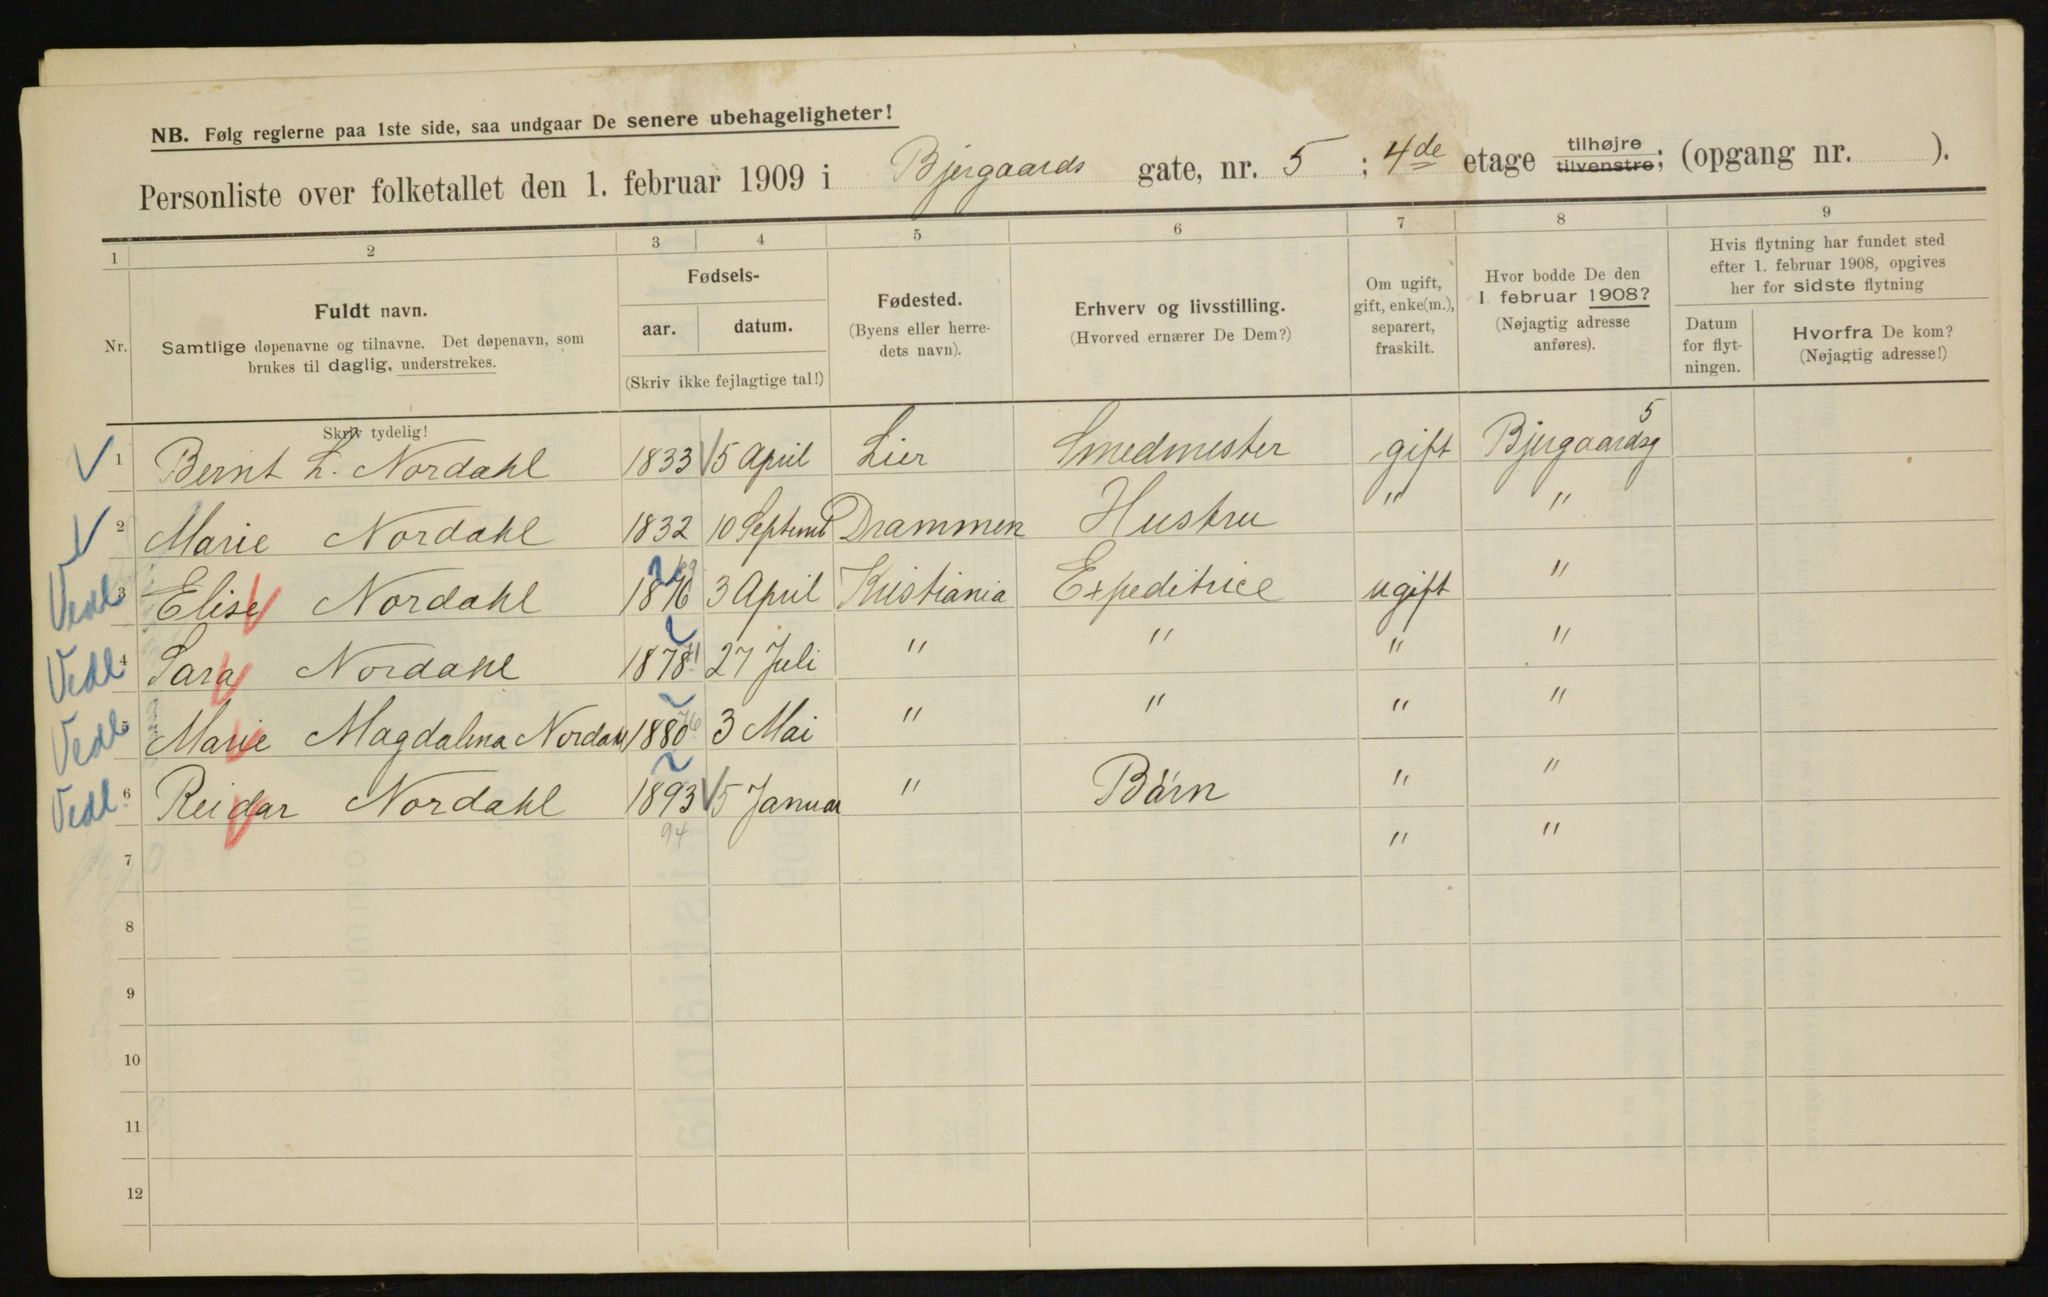 NB. Følg reglerne paa 1ste side, saa undgaar De senere ubehageligheter!
Personliste over folketallet den 1. februar 1909 i Bjergaards gate, nr. 5 ; 4de etage tilhøjre tilvenstre; (opgang nr. ).
1 2 3 4 5 6 7 8 9
Nr.
Fuldt navn.
Samtlige døpenavne og tilnavne. Det døpenavn, som
brukes til daglig, understrekes.
Fødsels-
aar. datum.
(Skriv ikke fejlagtige tal!)
Fødested.
(Byens eller herre-
dets navn).
Erhverv og livsstilling.
(Hvorved ernærer De Dem?)
Om ugift,
gift, enke(m.),
separert,
fraskilt.
Hvor bodde De den
1. februar 1908?
(Nøjagtig adresse
anføres).
Hvis flytning har fundet sted
efter 1. februar 1908, opgives
her for sidste flytning
Datum
for flyt-
ningen.
Hvorfra De kom?
(Nøjagtig adresse!)
Skriv tydelig!
1 Bernt L. Nordahl 1833 15 April Lier Smedmester gift Bjergaardsg 5
2 Marie Nordahl 1832 10 Septemb Drammen Hustru " "
Vedl 3 Elise Nordahl 1876 69 3 April Kristiania Expeditrice ugift "
Vedl 4 Sara Nordahl 1878 71 27 Juli " " " "
Vedl 5 Marie Magdalena Nordahl 1880 76 3 Mai " " " "
Vedl 6 Reidar Nordahl 1893 94 15 Januar " Börn " "
7 " "
8
9
10
11
12